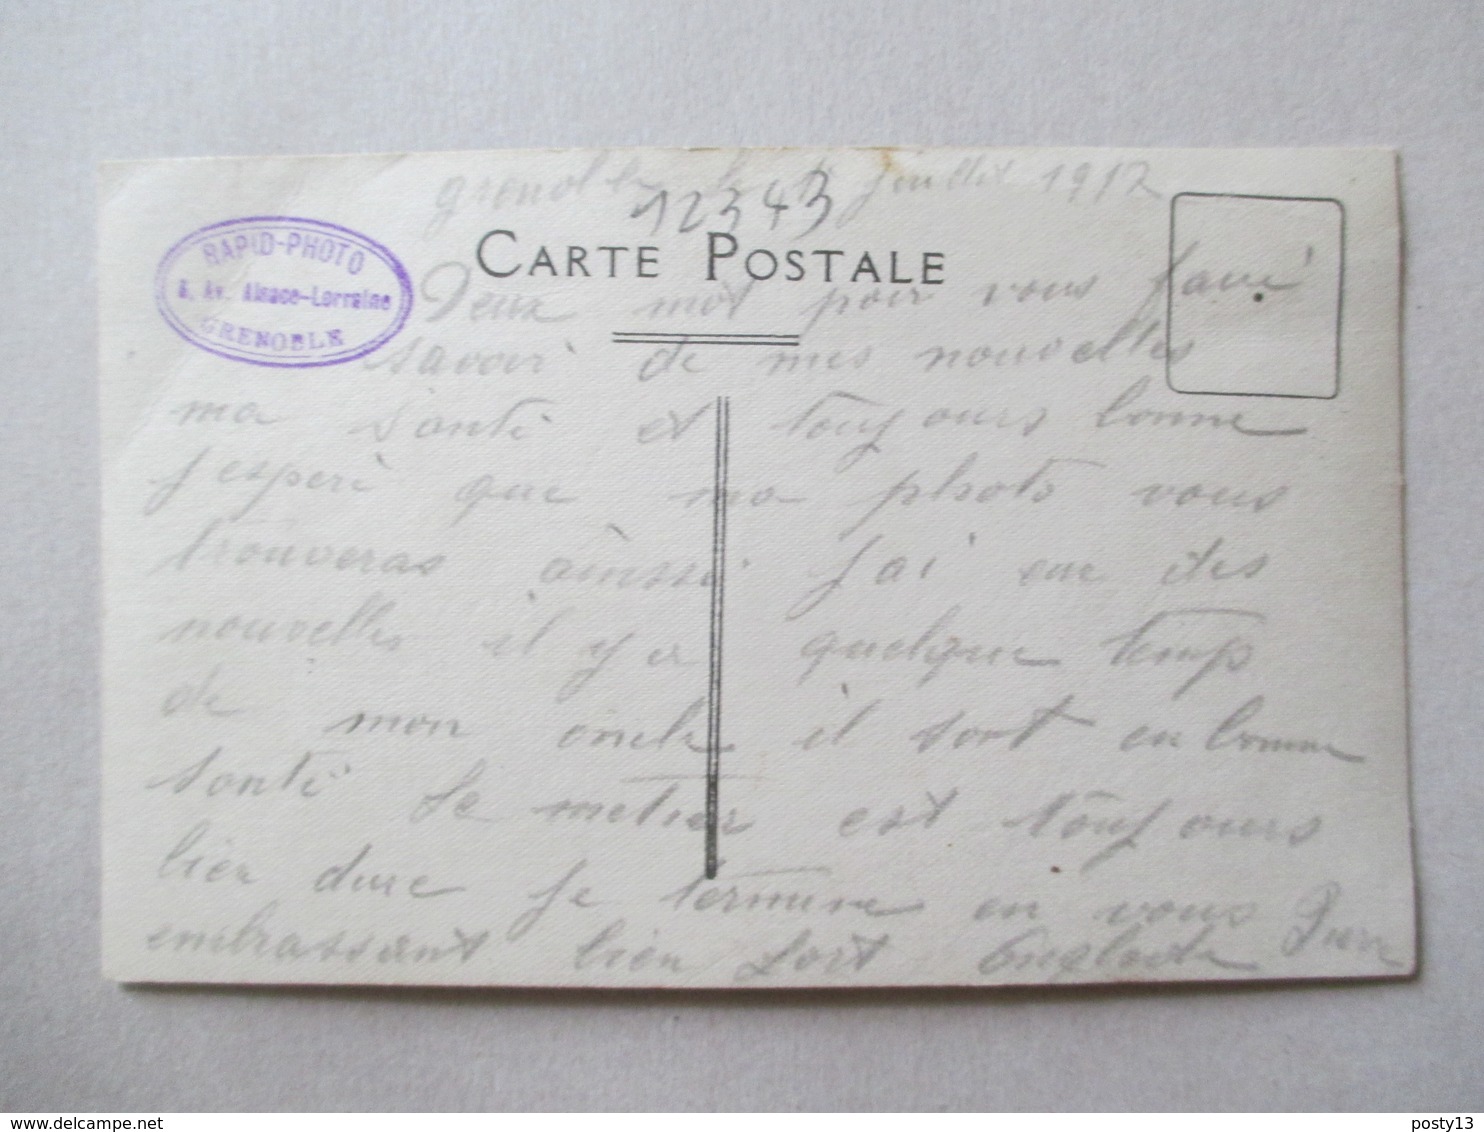 grenoble le juillet 1912
12343
RAPID-PHOTO
8, Av. Alsace-Lorraine
GRENOBLE
CARTE POSTALE
Deux mot pour vous faire
savoir de mes nouvelles
ma santé et toujours bonne
j'espère que ma photo vous
trouveras ainssi j'ai eue des
nouvelles il y a quelque temp
de mon oncle il sont en bonne
santé Le metier est toujours
bien dure Je termine en vous
embrassant bien fort Pierre
posty13
delcampe.net